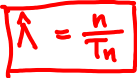 λ̂ = n/Tn